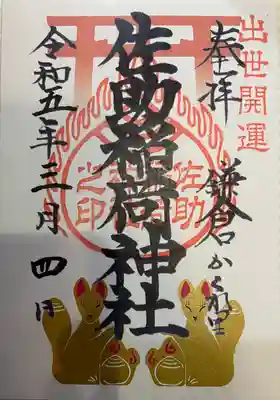 出世開運
奉拝
鎌倉かくれ里
佐助稲荷神社
佐助
之印
令和五年三月四日